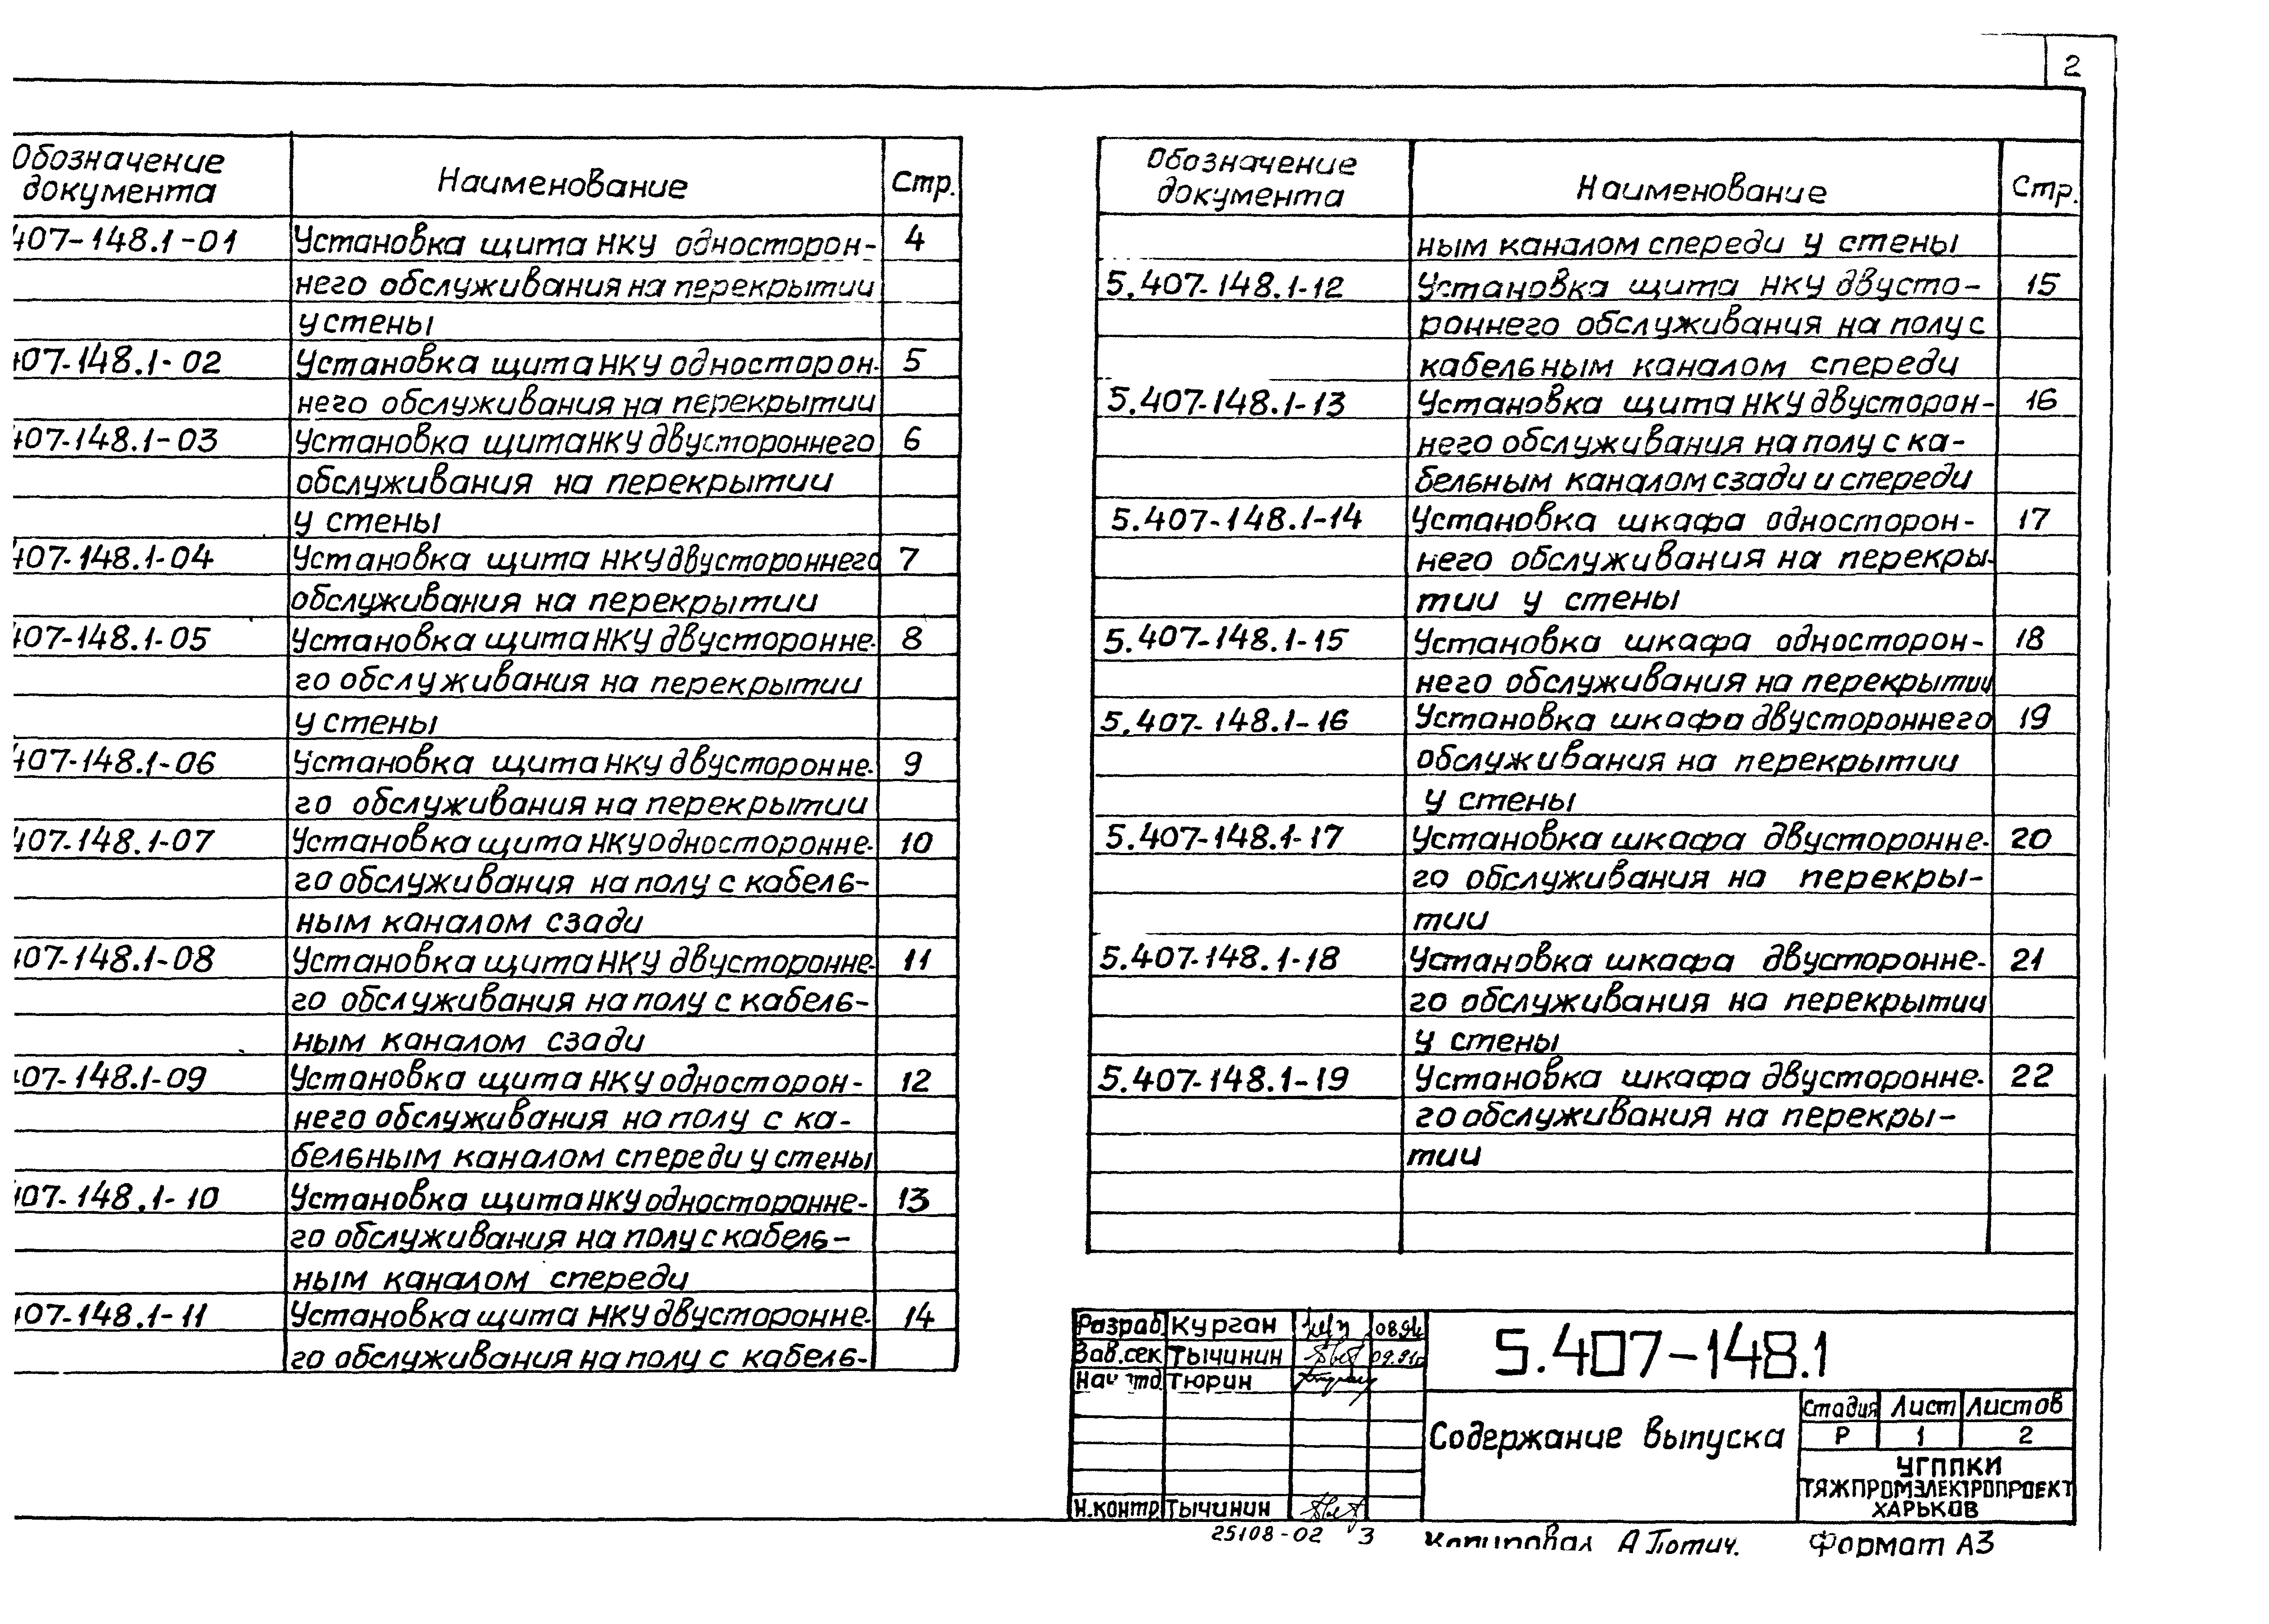 2
Обозначение документа Наименование Стр.
407-148.1-01 Установка щита НКУ односторон- 4
него обслуживания на перекрытии
у стены
407-148.1-02 Установка щита НКУ односторон- 5
него обслуживания на перекрытии
407-148.1-03 Установка щита НКУ двустороннего 6
обслуживания на перекрытии
у стены
407-148.1-04 Установка щита НКУ двустороннего 7
обслуживания на перекрытии
407-148.1-05 Установка щита НКУ двусторонне- 8
го обслуживания на перекрытии
у стены
407-148.1-06 Установка щита НКУ двусторонне- 9
го обслуживания на перекрытии
407-148.1-07 Установка щита НКУ односторонне- 10
го обслуживания на полу с кабель-
ным каналом сзади
407-148.1-08 Установка щита НКУ двусторонне- 11
го обслуживания на полу с кабель-
ным каналом сзади
407-148.1-09 Установка щита НКУ односторон- 12
него обслуживания на полу с ка-
бельным каналом спереди у стены
407-148.1-10 Установка щита НКУ односторонне- 13
го обслуживания на полу с кабель-
ным каналом спереди
407-148.1-11 Установка щита НКУ двусторонне- 14
го обслуживания на полу с кабель-
Обозначение документа Наименование Стр.
ным каналом спереди у стены
5.407-148.1-12 Установка щита НКУ двусто- 15
роннего обслуживания на полу с
кабельным каналом спереди
5.407-148.1-13 Установка щита НКУ двусторон- 16
него обслуживания на полу с ка-
бельным каналом сзади и спереди
5.407-148.1-14 Установка шкафа односторон- 17
него обслуживания на перекры-
тии у стены
5.407-148.1-15 Установка шкафа односторон- 18
него обслуживания на перекрытии
5.407-148.1-16 Установка шкафа двустороннего 19
обслуживания на перекрытии
у стены
5.407-148.1-17 Установка шкафа двусторонне- 20
го обслуживания на перекры-
тии
5.407-148.1-18 Установка шкафа двусторонне- 21
го обслуживания на перекрытии
у стены
5.407-148.1-19 Установка шкафа двусторонне- 22
го обслуживания на перекры-
тии
Разраб. Курган
Зав.сек Тычинин
Нач отд Тюрин
Н.контр. Тычинин
5.407-148.1
Содержание выпуска
Стадия Лист Листов
Р 1 2
УГППКИ
ТЯЖПРОМЭЛЕКТРОПРОЕКТ
ХАРЬКОВ
25108-02 3 Копировал Формат А3